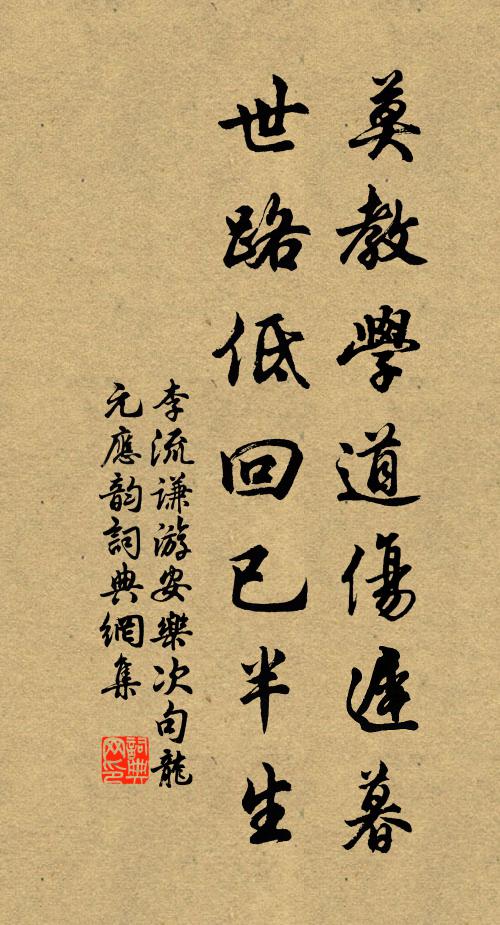 莫教學道傷遲暮
世路低回已半生
李流谦游安樂次句龍
元應韵詞典網集
詞典
网印